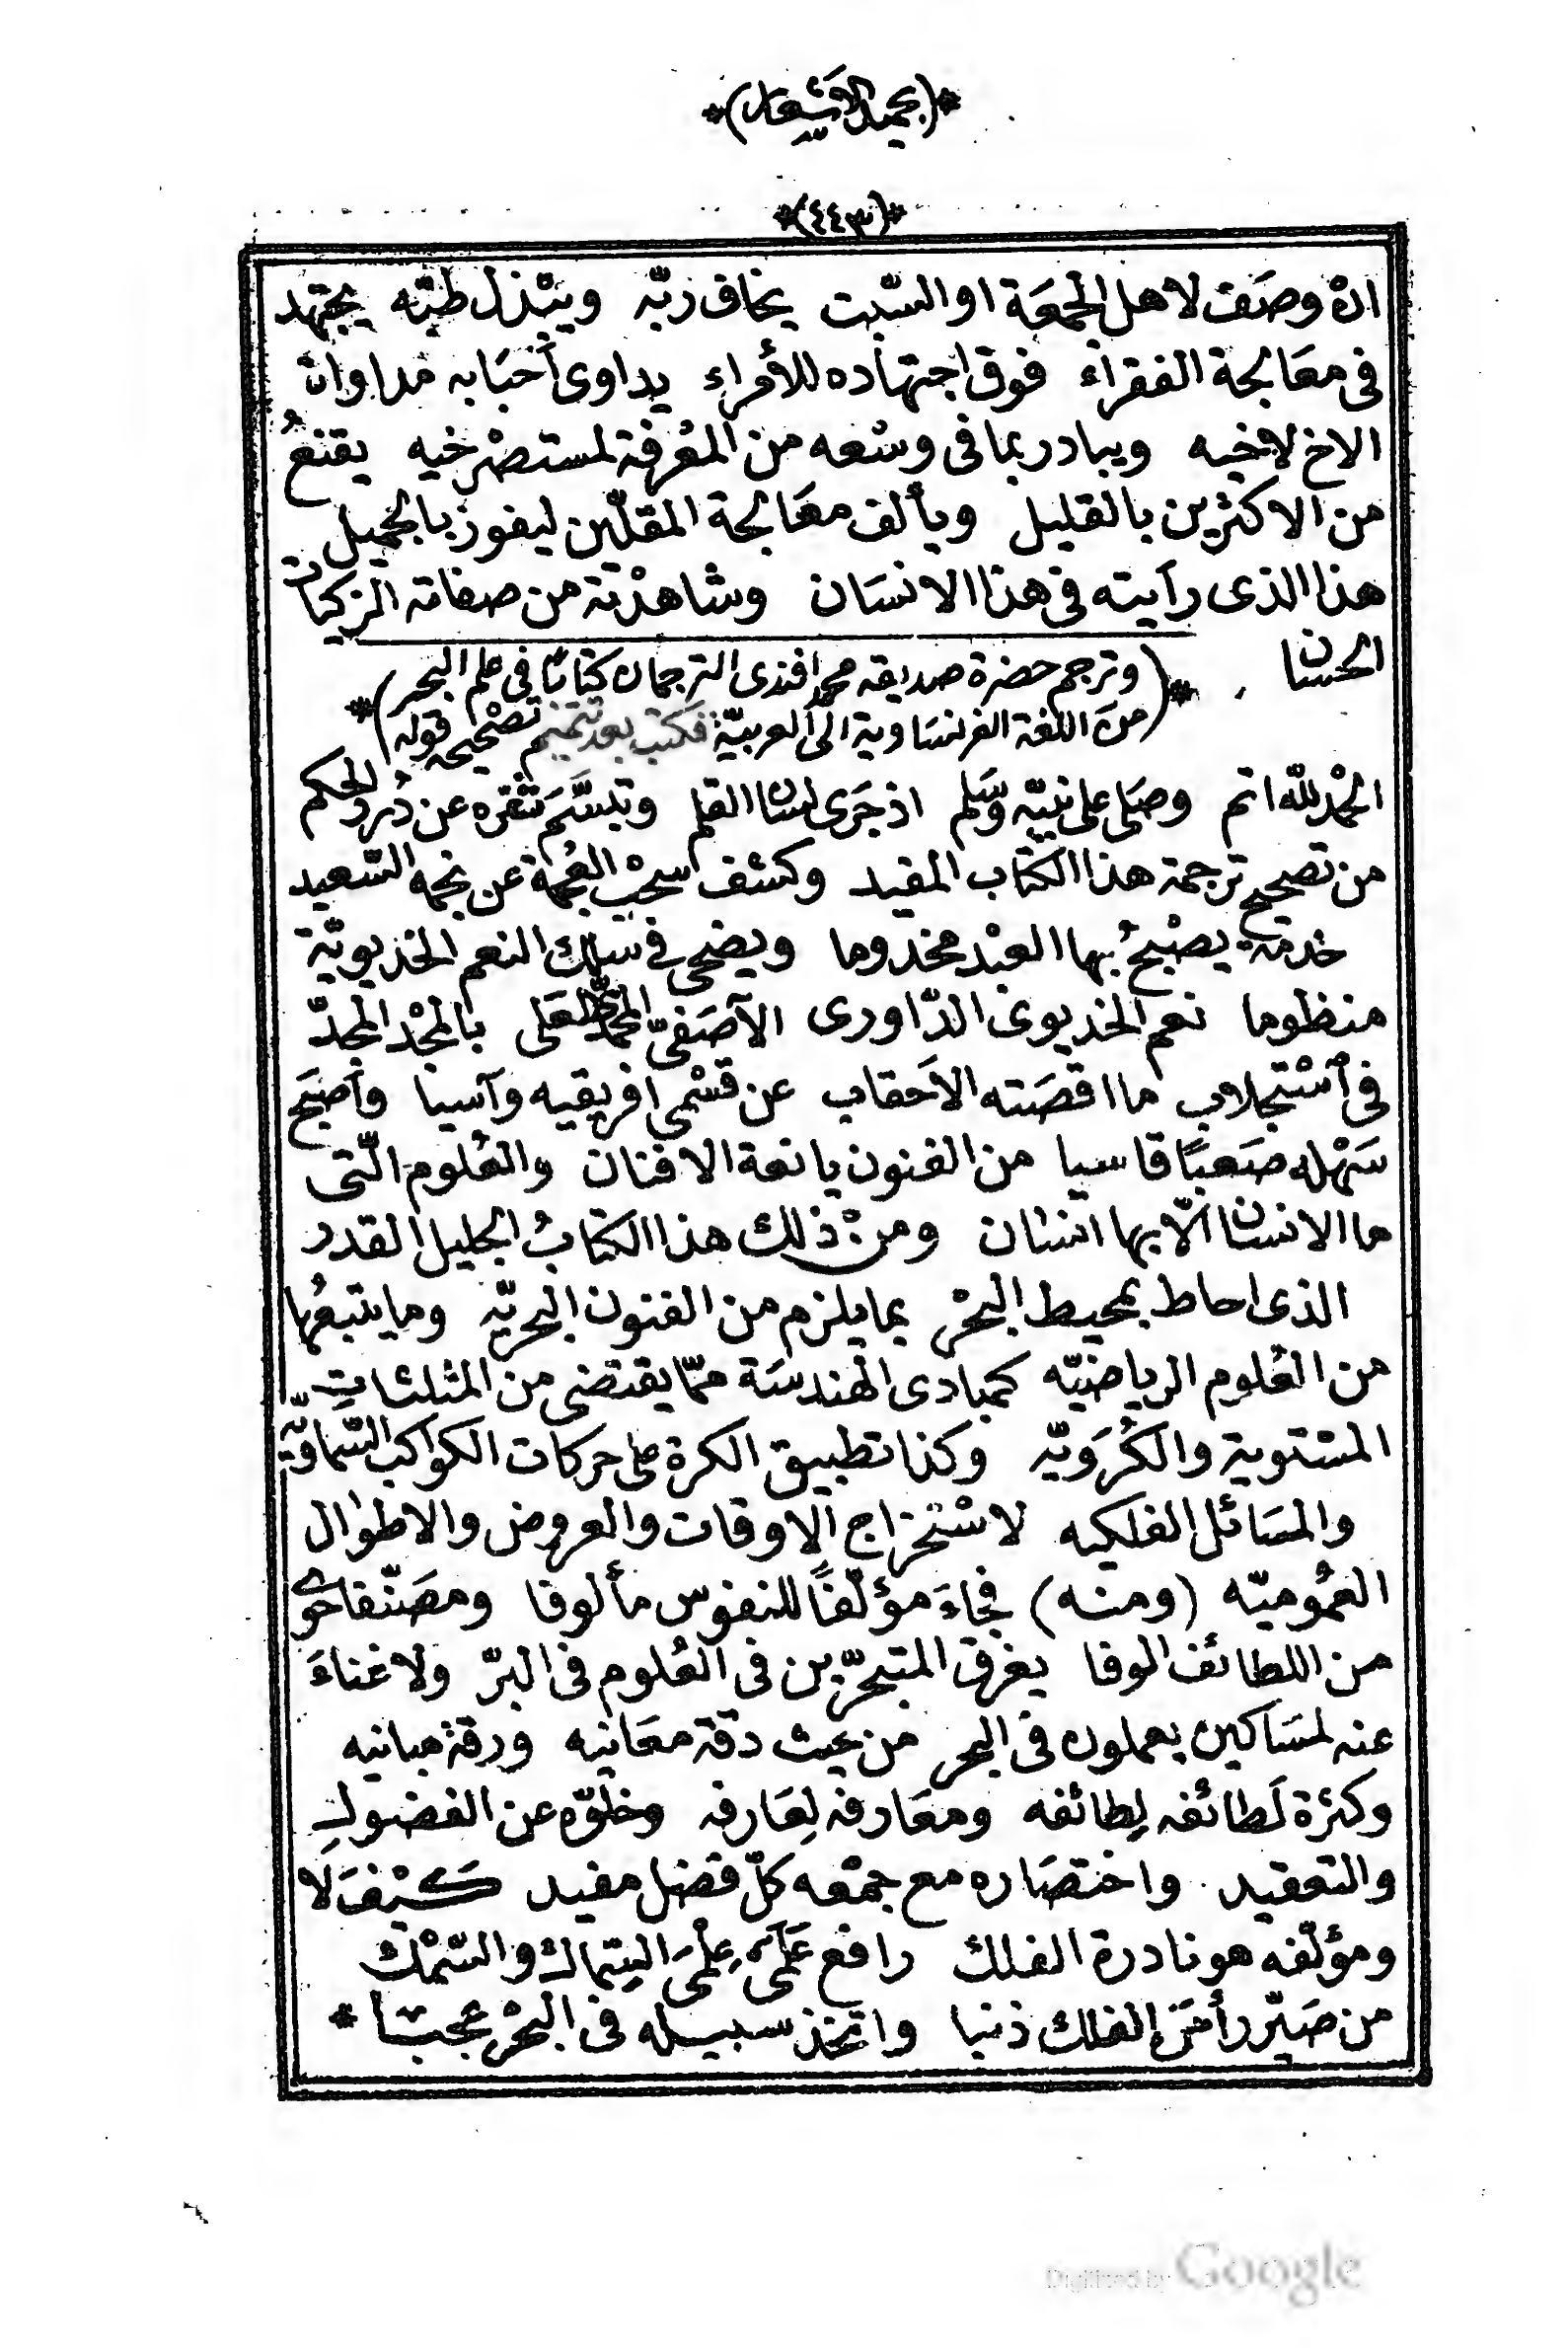 *(بحميد الاشعار)*
*(٤٤٣)*
اذ وصَف لاهل الجمعَة او السّبت يخاف ربّه ويبْذل طبّه يجتهد
فى معَالجة الفقراء فوق اجتهاده للأمراء يداوى أحبَابه مداواة
الاخ لاخيه ويبادر بما فى وسْعه من المعْرفة لمستصْرخيه يقنعُ
من الاكثرين بالقليل ويألف معَالجة المقلّين ليفوز بالجميل
هذا الذى رأيته فى هذا الانسَان وشاهدْته من صفاته الزكيات
الحسَان *(وترجم حضرة صديقه محمد افندى الترجمان كتابًا فى علم البحر)*
(منَ اللغة الفرنسَاوية الى العربيّة فكتب بعد تتميم تصْحيحه قوله)
الحمْد للّه اتم وصَلى على نبيّه وسَلم اذ جَرى لسَان القلم وتبسَّمَ ثغره عن دُرر الحكم
من تصحيح ترجمة هذا الكتاب المفيد وكشف سحْب العُجمة عن نجمه السّعيد
خدمة يصْبحُ بها العبْد مخدوما ويضحى فى سلك النعم الخديويّة
منظوما نعم الخديوى الدّاورى الآصَفىّ المحمّدىّ العَلى بالمجْد المجدّ
فى أسْتجلاب ما اقصَته الاَحقاب عن قسْمى افريقيه وآسيا وأصبَح
سَهْله صَعبًا قاسيا من الفنون يانعة الافنان والعُلوم الّتى
ما الانسَان الّا بها انسَان ومنْ ذلك هذا الكتابُ الجليل القدر
الذى احاط بمحيط البحْر بما يلزم من الفنون البحْريّه وما يتبعُها
من العُلوم الرياضيّه كمبادى الهندسَة ممّا يقتضى من المثلثاتِ
المسْتوية والكُرَويّه وكذا تطبيق الكرة على حركات الكواكب السّماويّه
والمسَائل الفلكيه لاسْتخرَاج الاوقات والعروض والاطوال
العمُوميّه (ومنه) فجاءَ مؤلّفًا للنفوس مألوفا ومصَنّفا حَوى
من اللطائف الوفا يغرق المتبحّرين فى العُلوم فى البرّ ولا غناءَ
عنه لمسَاكين يعملون فى البحر من حيث دقة معَانيه ورقة مبانيه
وكثرة لَطائفه لِطائفه ومعَارفه لِعَارفه وخلوّه عن الفضول
والتعقيد واختصَاره مع جمْعه كلّ فضل مفيد كيْفَ لا
ومؤلّفه هو نادرة الفلك رافع عَلَمىْ عِلْمَىِ السّماك والسّمْك
من صَيّر رأسَ الفلك ذنبا واتّخذ سبيله فى البحْر عجبَا *
Digitized by Google